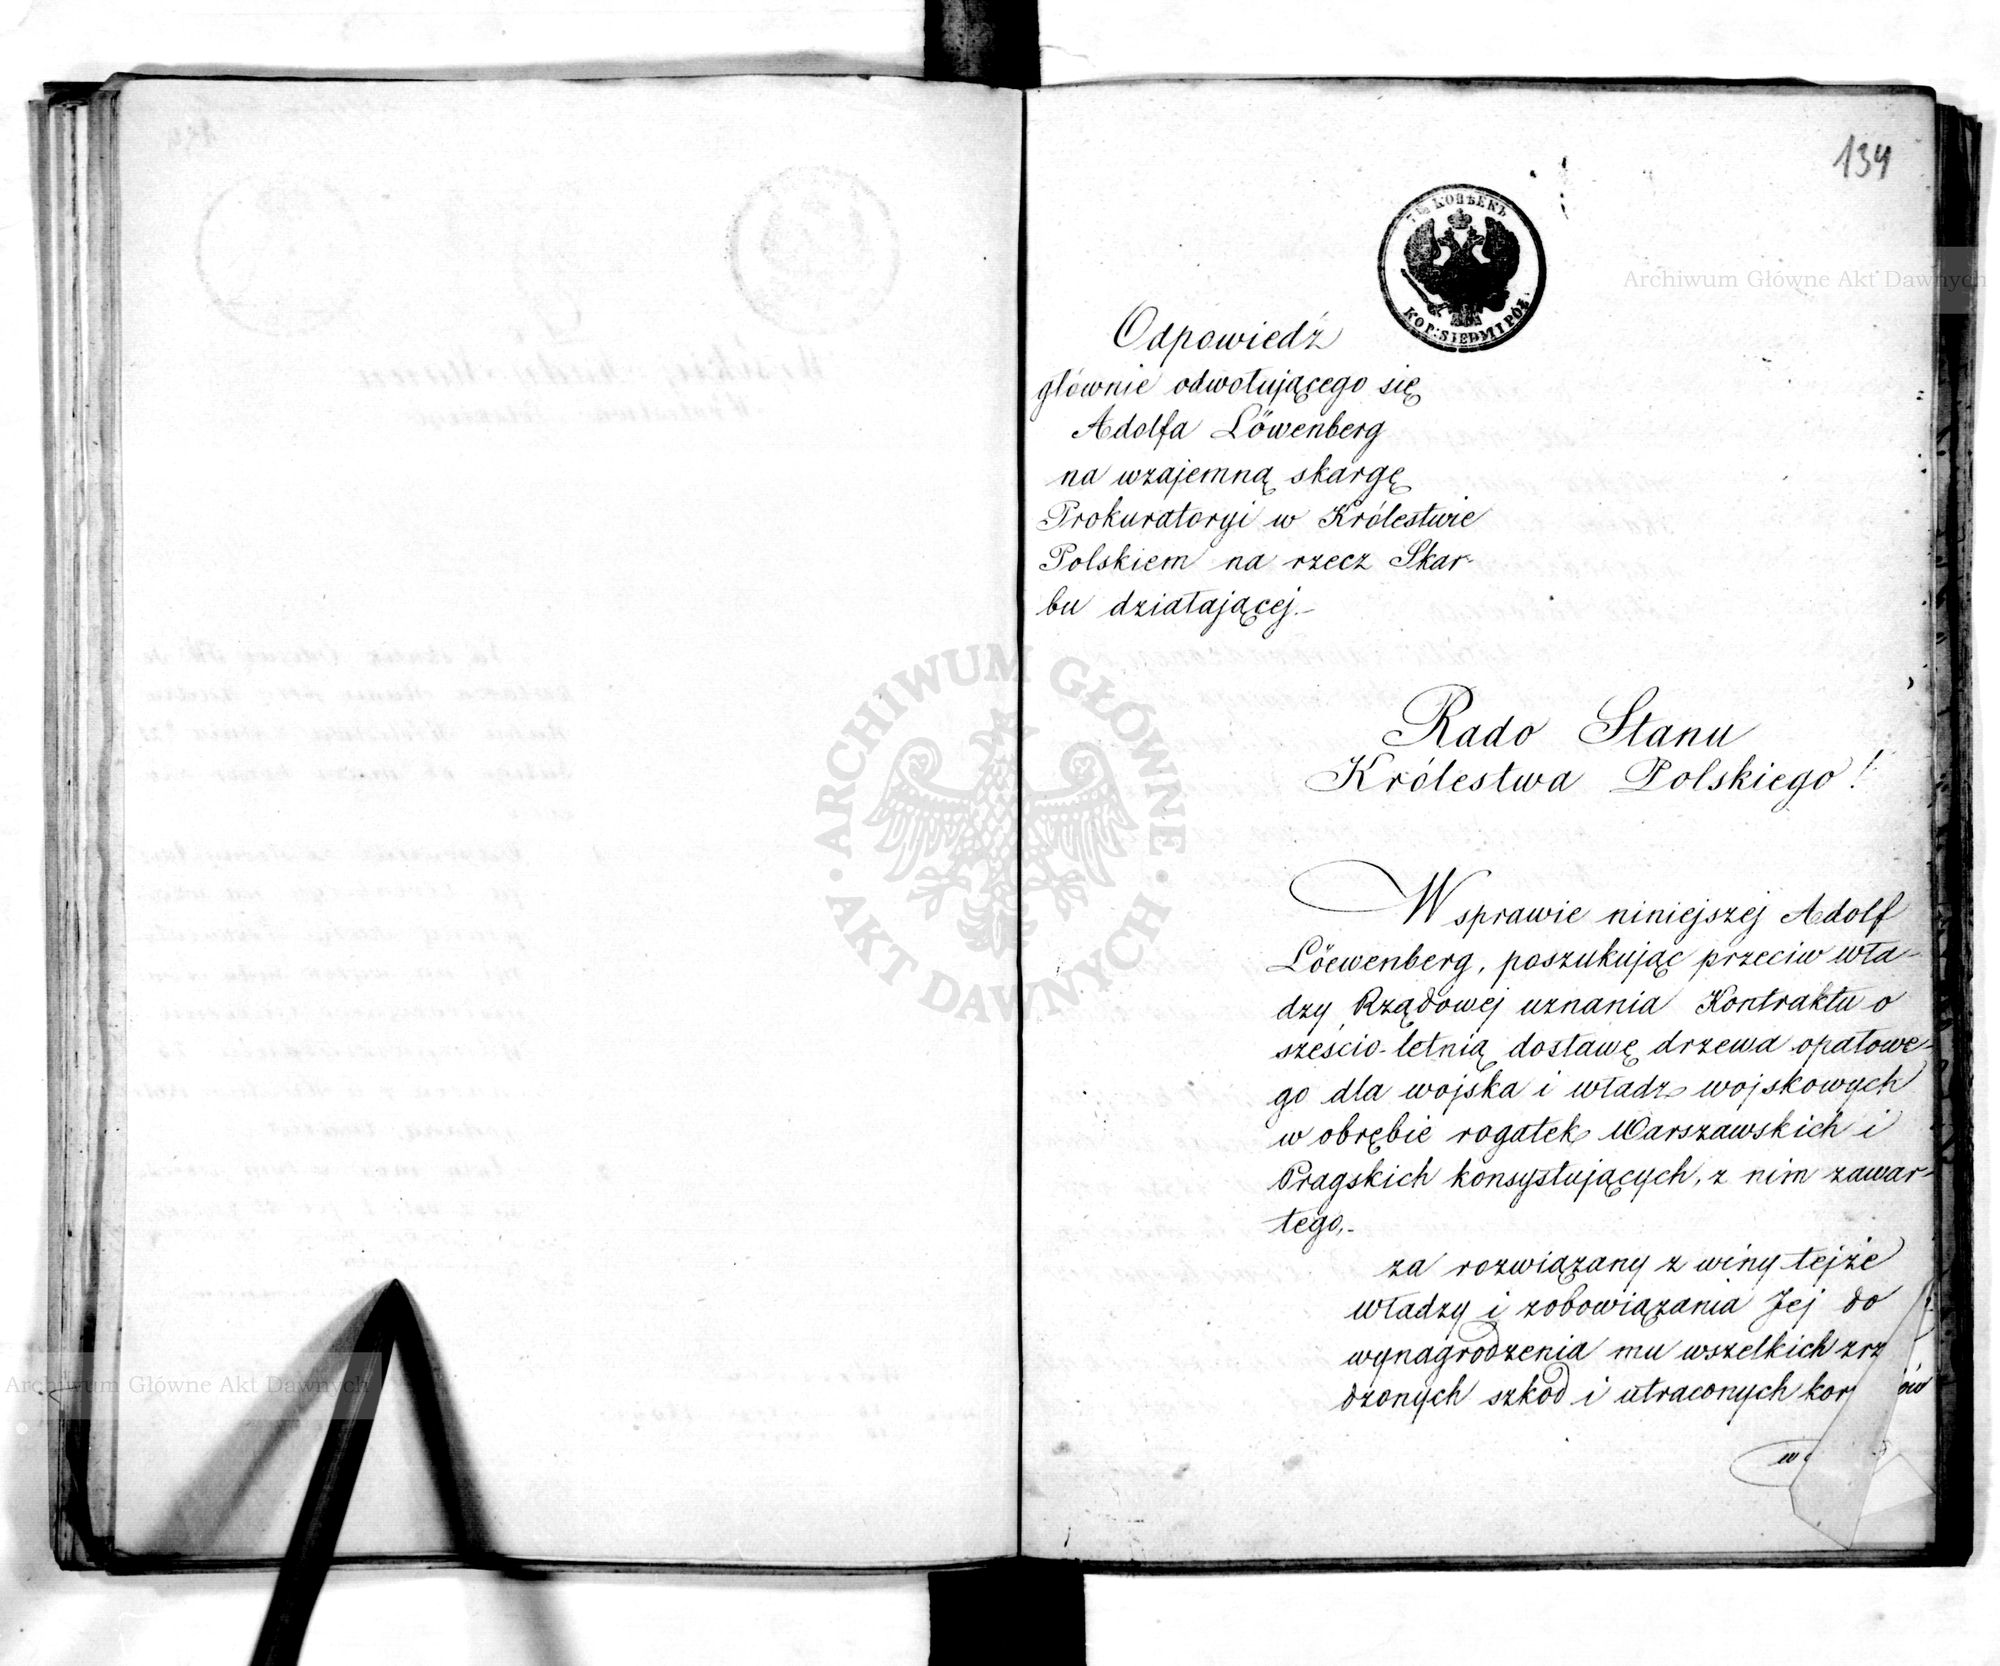 134
7½ КОПѢЕКЪ
KOP: SIEDM I PÓŁ.
Odpowiedź
głównie odwołującego się
Adolfa Löwenberg
na wzajemną skargę
Prokuratoryi w Królestwie
Polskiem na rzecz Skar-
bu działającej.-
Rado Stanu
Królestwa Polskiego!
W sprawie niniejszej Adolf
Löewenberg, poszukując przeciw wła-
dzy Rządowej uznania Kontraktu o
sześcio-letnią dostawę drzewa opałowe-
go dla wojska i władz wojskowych
w obrębie rogatek Warszawskich i
Pragskich konsystujących, z nim zawar-
tego,-
za rozwiązany z winy tejże
władzy i zobowiązania Jej do
wynagrodzenia mu wszelkich zrz
dzonych szkod i utraconych kor ów
Archiwum Główne Akt Dawnych
ARCHIWUM GŁÓWNE · AKT DAWNYCH ·
Archiwum Główne Akt Dawnych